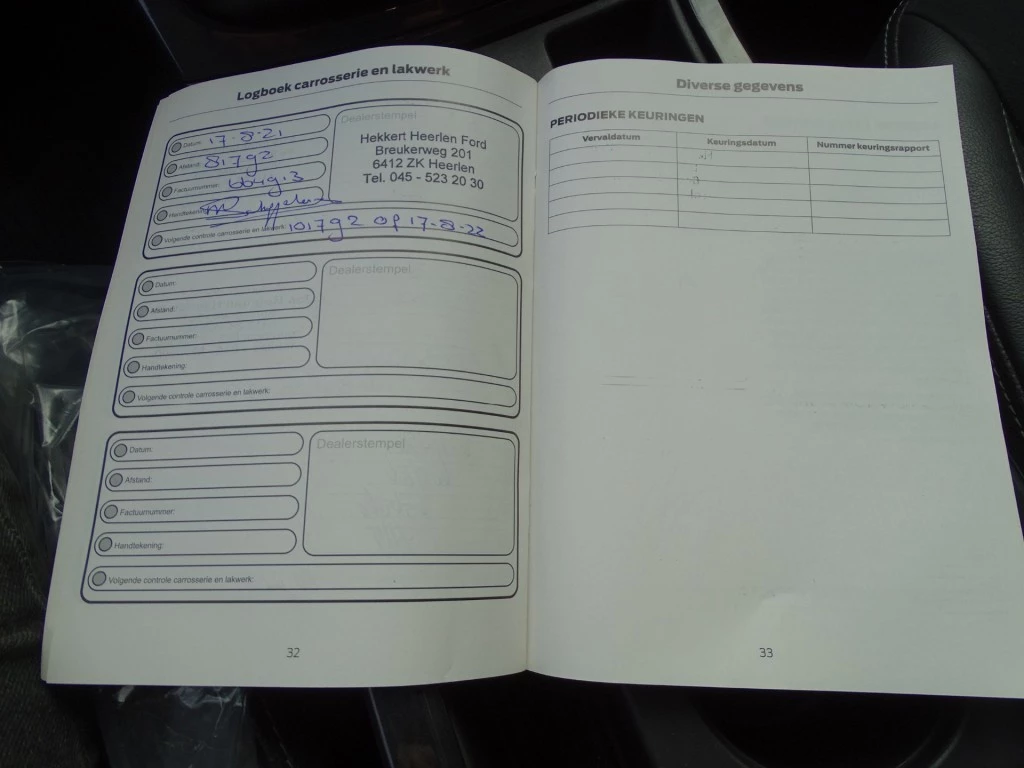 Logboek carrosserie en lakwerk
Datum: 17-8-21
Afstand: 81792
Factuurnummer:
Handtekening:
Dealerstempel
Hekkert Heerlen Ford
Breukerweg 201
6412 ZK Heerlen
Tel. 045 - 523 20 30
Volgende controle carrosserie en lakwerk: 101792 op 17-8-22
Datum:
Afstand:
Factuurnummer:
Handtekening:
Dealerstempel
Volgende controle carrosserie en lakwerk:
Datum:
Afstand:
Factuurnummer:
Handtekening:
Dealerstempel
Volgende controle carrosserie en lakwerk:
32
Diverse gegevens
PERIODIEKE KEURINGEN
Vervaldatum Keuringsdatum Nummer keuringsrapport
33